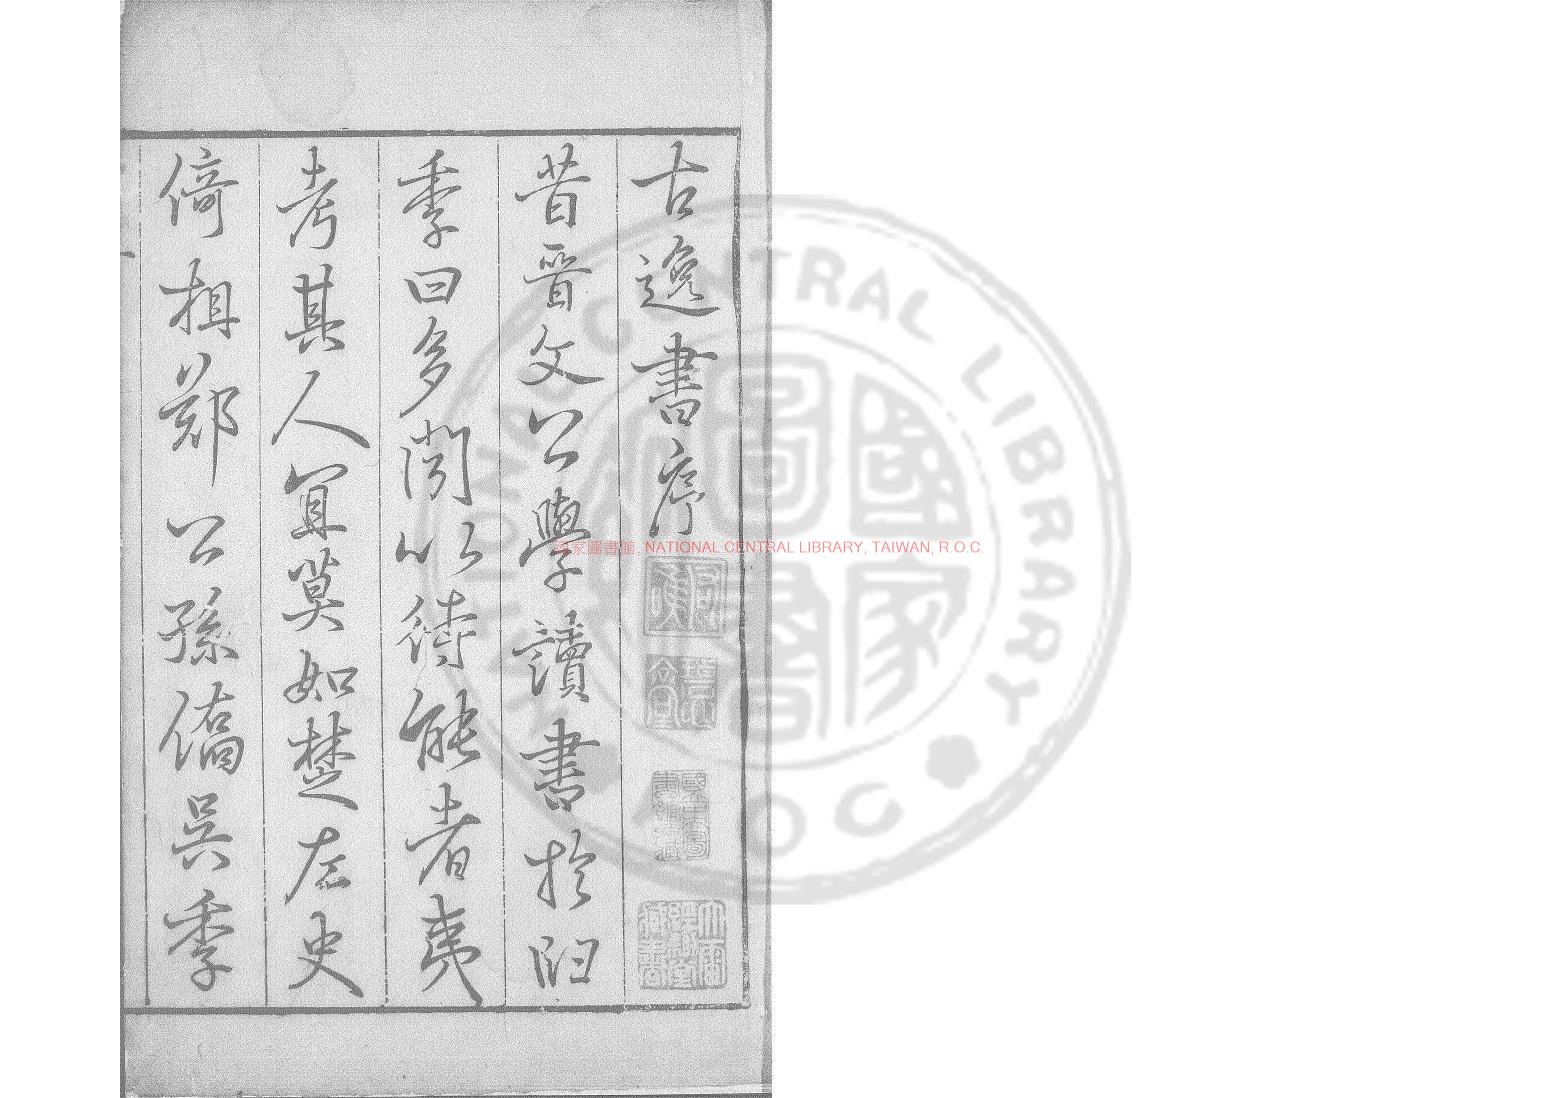 古逸書序
昔晉文公學讀書於臼
季曰多聞以待能者夷
考其人宜莫如楚左史
倚相鄭公孫僑吳季
國家圖書館, NATIONAL CENTRAL LIBRARY, TAIWAN, R.O.C.
NATIONAL CENTRAL LIBRARY
R.O.C
國家圖書